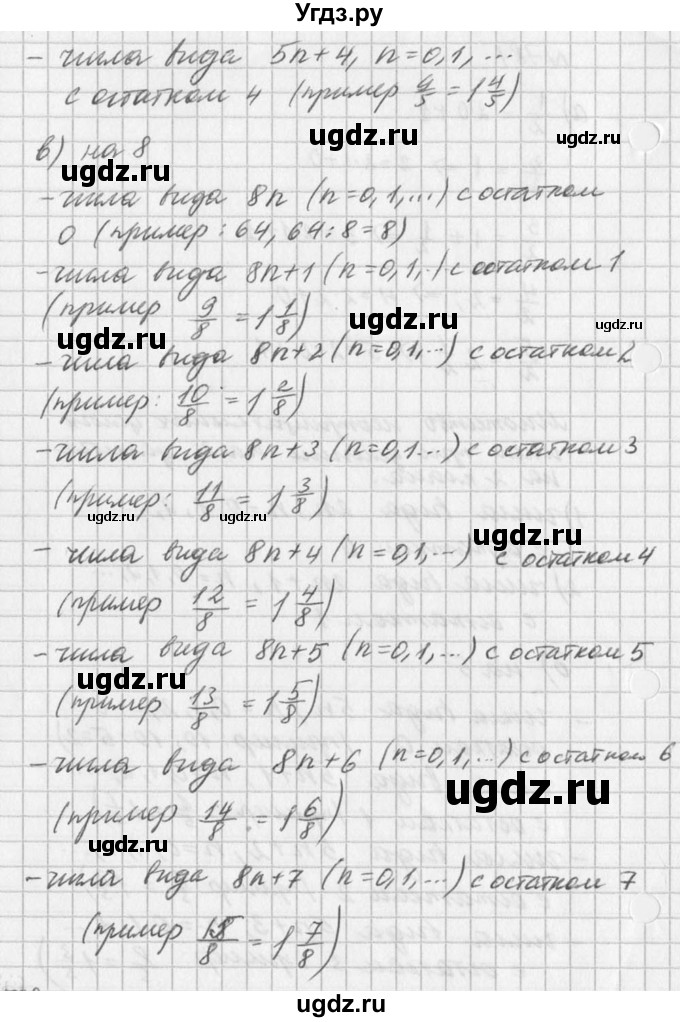 Угдз.ру
- числа вида 5n+4, n=0,1,...
с остатком 4 (пример 4/5 = 1 4/5)
в) на 8
ugdz.ru ugdz.ru
- числа вида 8n (n=0,1,...) с остатком
0 (пример: 64, 64:8=8)
- числа вида 8n+1 (n=0,1,..) с остатком 1
(пример 9/8 = 1 1/8)
ugdz.ru ugdz.ru
- числа вида 8n+2 (n=0,1,...) с остатком 2
(пример: 10/8 = 1 2/8)
- числа вида 8n+3 (n=0,1...) с остатком 3
(пример: 11/8 = 1 3/8)
ugdz.ru ugdz.ru ugdz.ru
- числа вида 8n+4 (n=0,1,...) с остатком 4
(пример 12/8 = 1 4/8)
- числа вида 8n+5 (n=0,1,...) с остатком 5
ugdz.ru ugdz.ru
(пример 13/8 = 1 5/8)
- числа вида 8n+6 (n=0,1,...) с остатком 6
ugdz.ru
(пример 14/8 = 1 6/8)
ugdz.ru ugdz.ru
- числа вида 8n+7 (n=0,1,...) с остатком 7
(пример 15/8 = 1 7/8)
ugdz.ru ugdz.ru
ugdz.ru